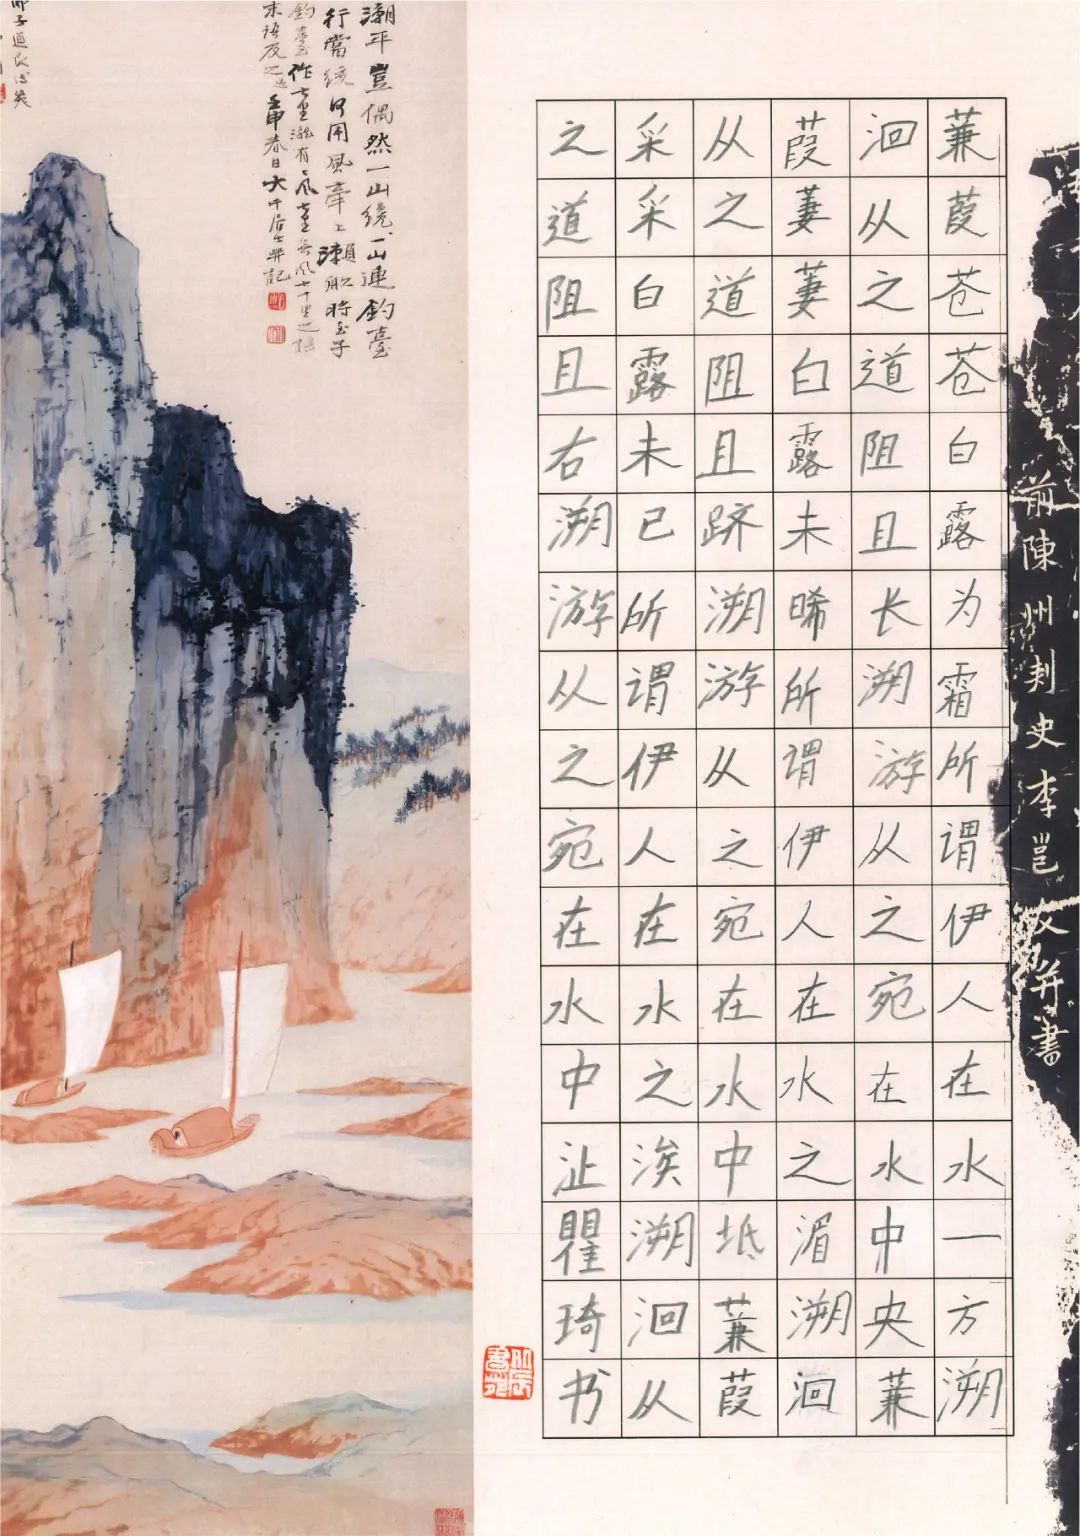 前陳州刺史李邕文并書
蒹葭苍苍白露为霜所谓伊人在水一方溯
洄从之道阻且长溯游从之宛在水中央蒹
葭萋萋白露未晞所谓伊人在水之湄溯洄
从之道阻且跻溯游从之宛在水中坻蒹葭
采采白露未已所谓伊人在水之涘溯洄从
之道阻且右溯游从之宛在水中沚瞿琦书
潮平豈偶然一山繞一山連釣臺
行當繞何用風牽上瀨船時子
釣臺作七里瀧有風七里無風七十里之
末語反之壬申春日大千居士并記